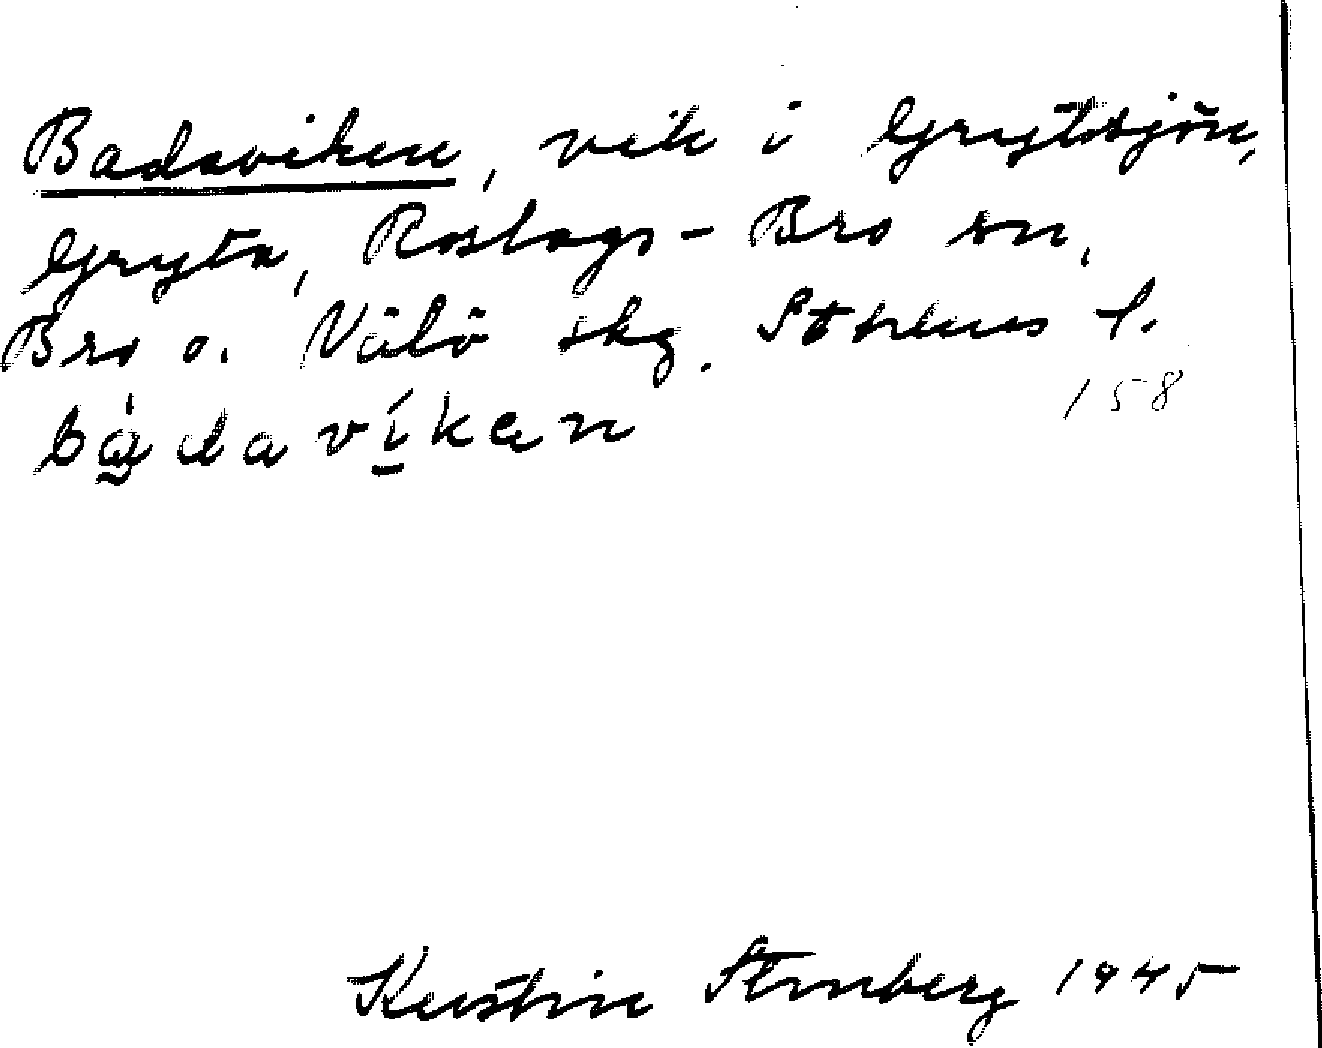 Badaviken, vik i Grytsjön,
Gryta, Roslags-Bro sn,
Bro o. Vätö skg. Sthlms l.
158
bàdavíkən
Kerstin Stenberg 1945